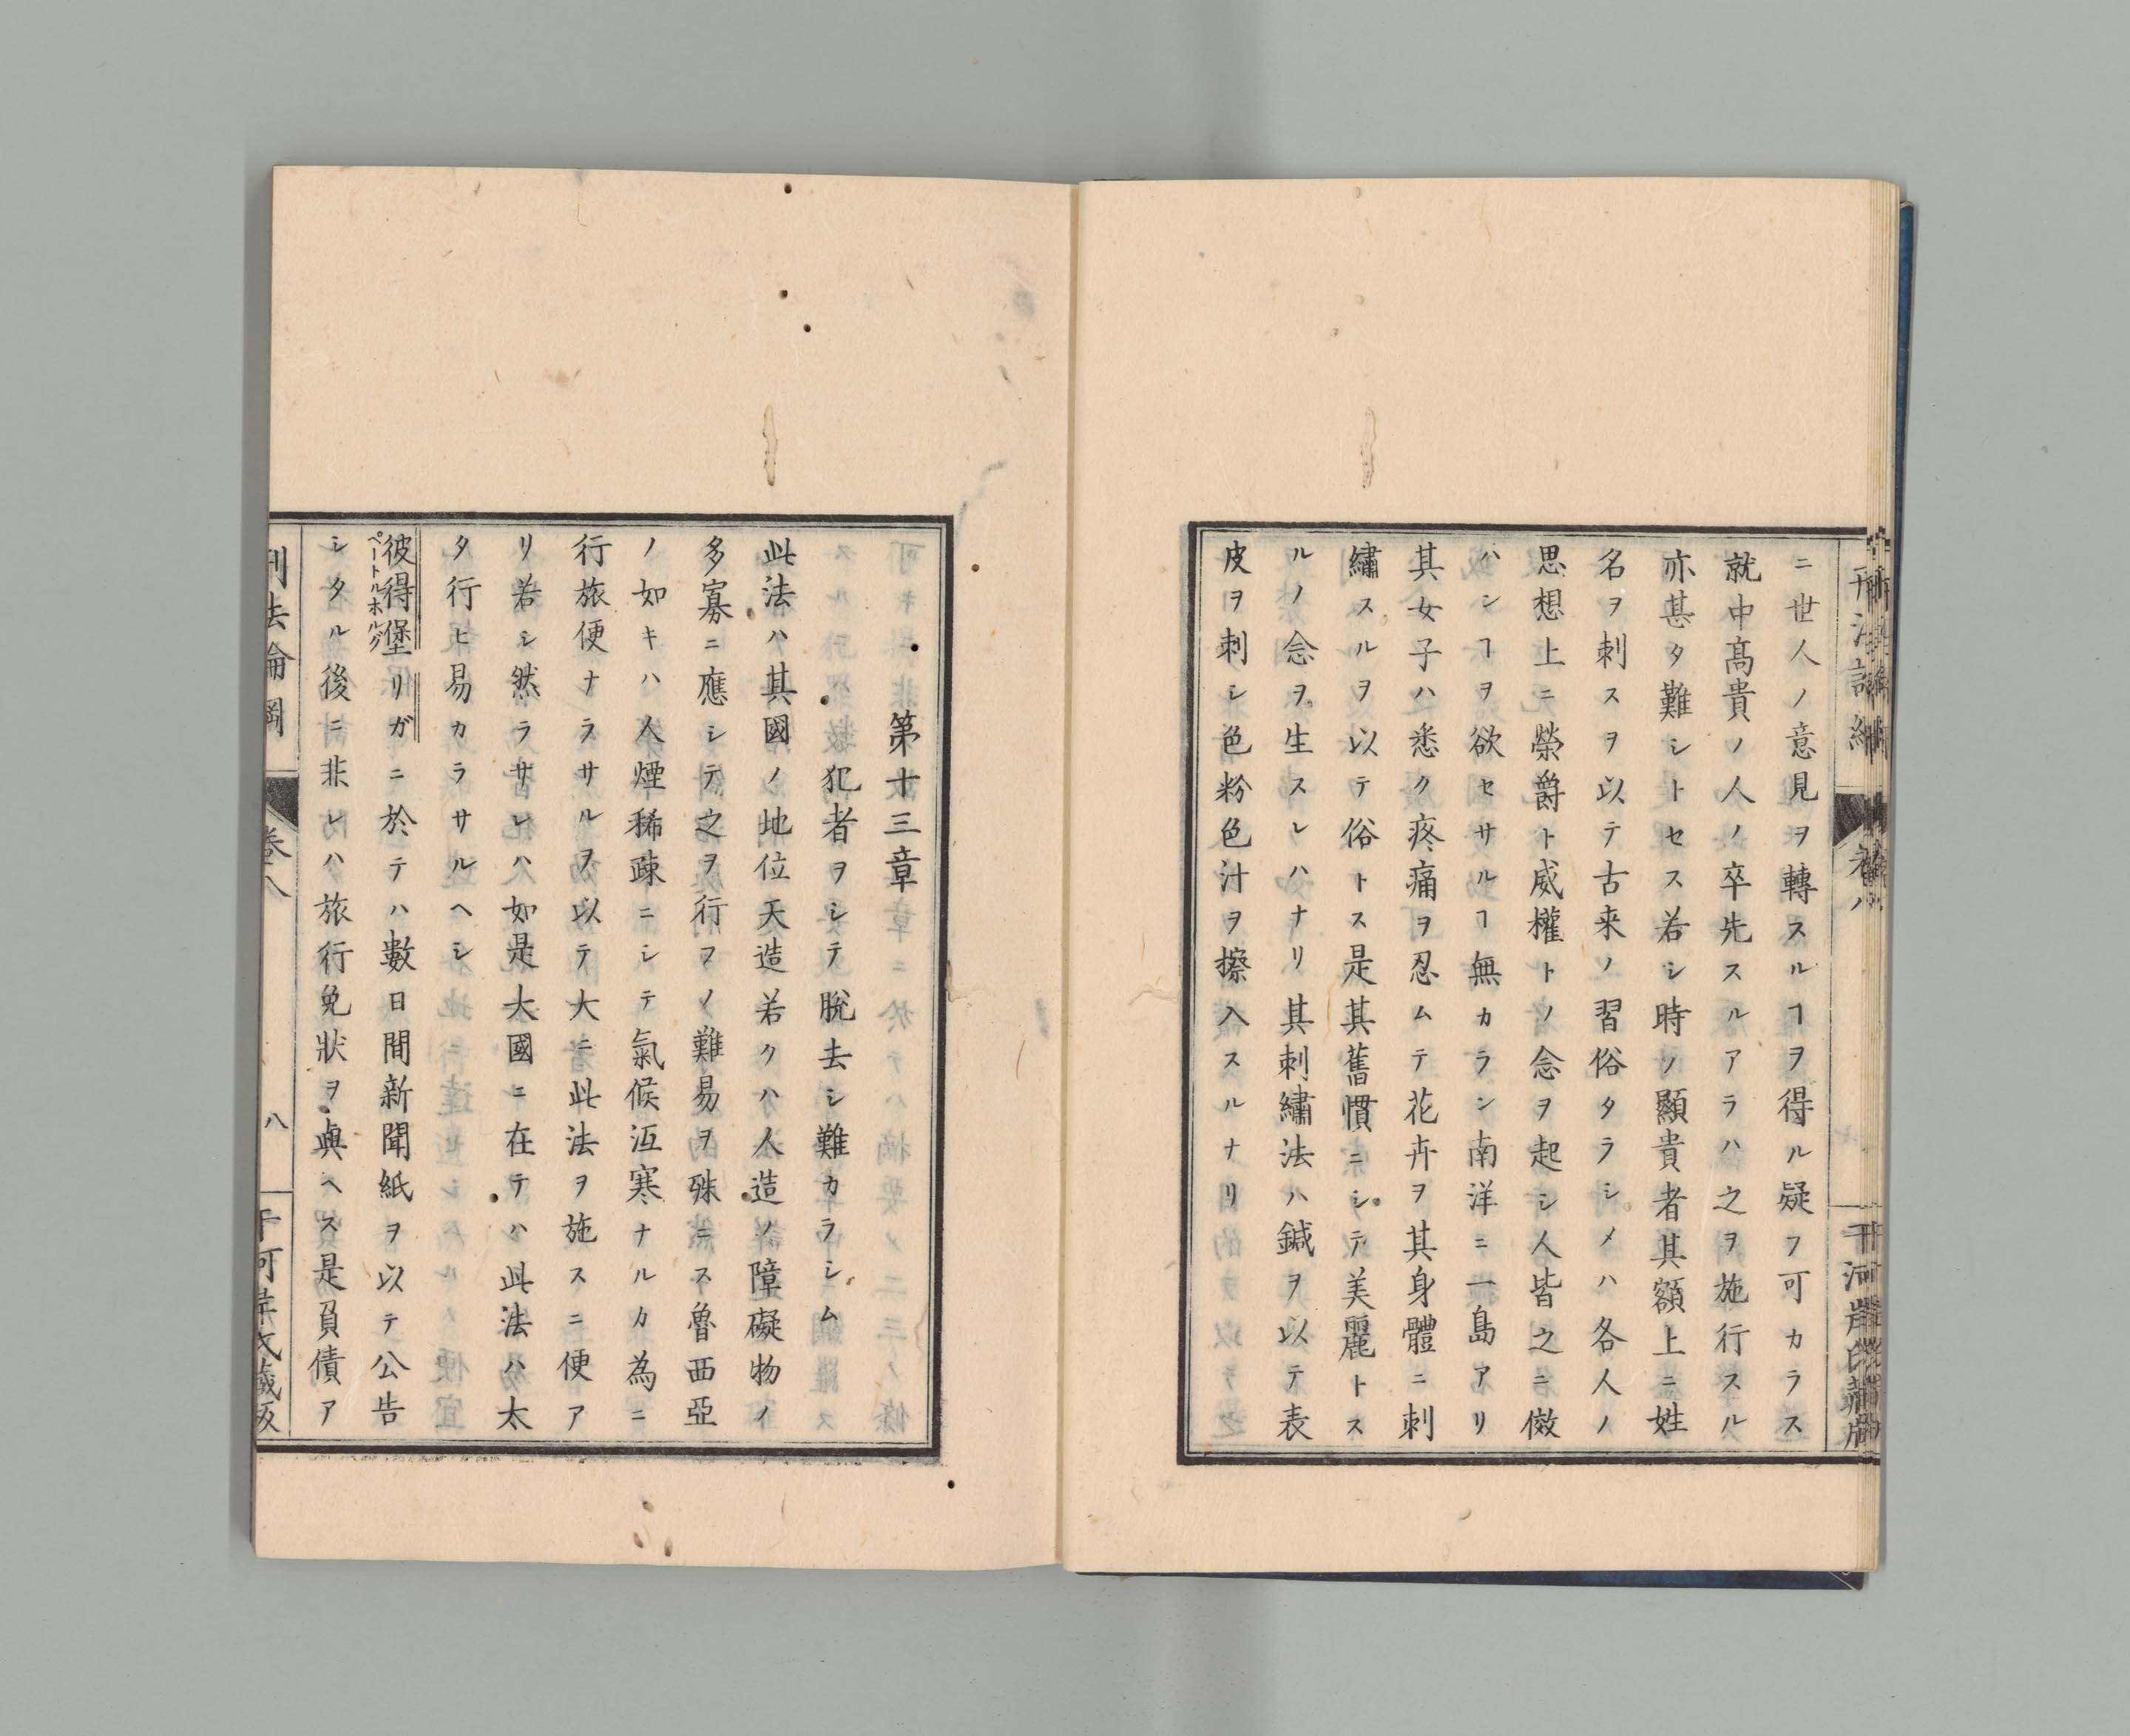 ニ世人ノ意見ヲ轉スルヿヲ得ル疑フ可カラス
就中髙貴ノ人ノ卒先スルアラハ之ヲ施行スル
亦甚タ難シトセス若シ時ノ顯貴者其額上ニ姓
名ヲ刺スヲ以テ古来ノ習俗タラシメハ各人ノ
思想上ニ榮爵ト威權トノ念ヲ起シ人皆之ニ傚
ハンヿヲ欲セサルヿ無カラン南洋ニ一島アリ
其女子ハ悉ク疼痛ヲ忍ムテ花卉ヲ其身體ニ刺
繡スルヲ以テ俗トス是其舊慣ニシテ美麗トス
ルノ念ヲ生スレハナリ其刺繡法ハ鍼ヲ以テ表
皮ヲ刺シ色粉色汁ヲ擦入スルナリ
第十三章
犯者ヲシテ脫去シ難カラシム
此法ハ其國ノ地位天造若クハ人造ノ障礙物ノ
多寡ニ應シテ之ヲ行フノ難易ヲ殊ニス魯西亞
ノ如キハ人煙稀疎ニシテ氣候沍寒ナルカ為ニ
行旅便ナラサルヲ以テ大ニ此法ヲ施スニ便ア
リ若シ然ラサレハ如是大國ニ在テハ此法ハ太
タ行ヒ易カラサルヘシ
彼得堡リガニ於テハ數日間新聞紙ヲ以テ公告
ペートルホルグ
シタル後ニ非レハ旅行免狀ヲ與ヘス是負債ア
刑法論綱
卷八
八